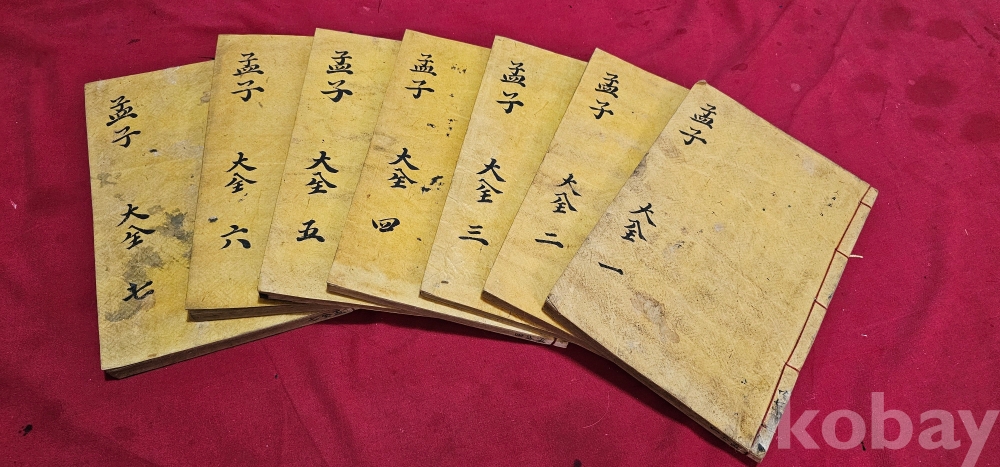 孟子 大全 七
孟子 大全 六
孟子 大全 五
孟子 大全 四
孟子 大全 三
孟子 大全 二
孟子 大全 一
kobay